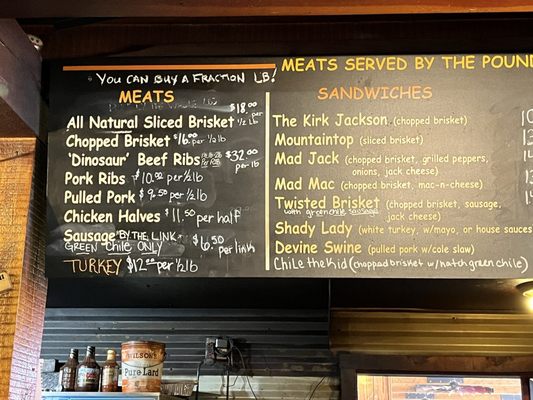 YOU CAN BUY A FRACTION LB!
MEATS SERVED BY THE POUN
MEATS
All Natural Sliced Brisket $18.00 per 1/2 lb
Chopped Brisket $16.00 per 1/2 lb
'Dinosaur' Beef Ribs $32.00 per lb
Pork Ribs $10.92 per 1/2 lb
Pulled Pork $9.50 per 1/2 lb
Chicken Halves $11.50 per half
Sausage BY THE LINK $6.50 per link
GREEN Chile ONLY
TURKEY $12.00 per 1/2 lb
SANDWICHES
The Kirk Jackson (chopped brisket)
Mountaintop (sliced brisket)
Mad Jack (chopped brisket, grilled peppers,
onions, jack cheese)
Mad Mac (chopped brisket, mac-n-cheese)
Twisted Brisket (chopped brisket, sausage,
with green chile sausage jack cheese)
Shady Lady (white turkey, w/mayo, or house sauces
Devine Swine (pulled pork w/cole slaw)
Chile the Kid (chopped brisket w/hatch green chile)
WILSON'S
Pure Lard